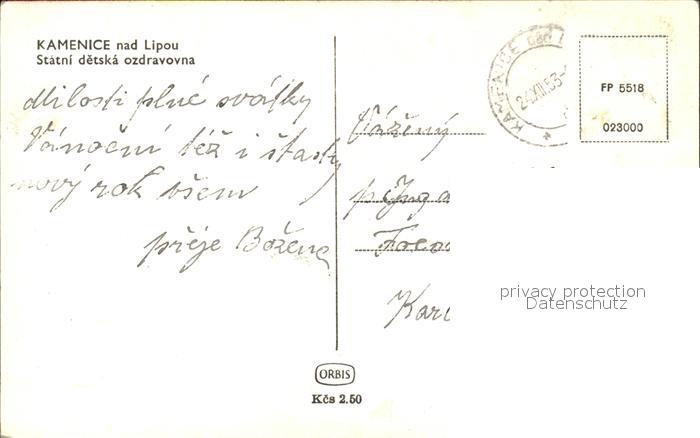 KAMENICE nad Lipou
Státní dětská ozdravovna
Milosti plné svátky
Vánoční též i šťastný
nový rok všem
přeje Božena
KAMENICE nad L
XII.53
FP 5518
023000
Vážený
Karl
privacy protection
Datenschutz
ORBIS
Kčs 2.50